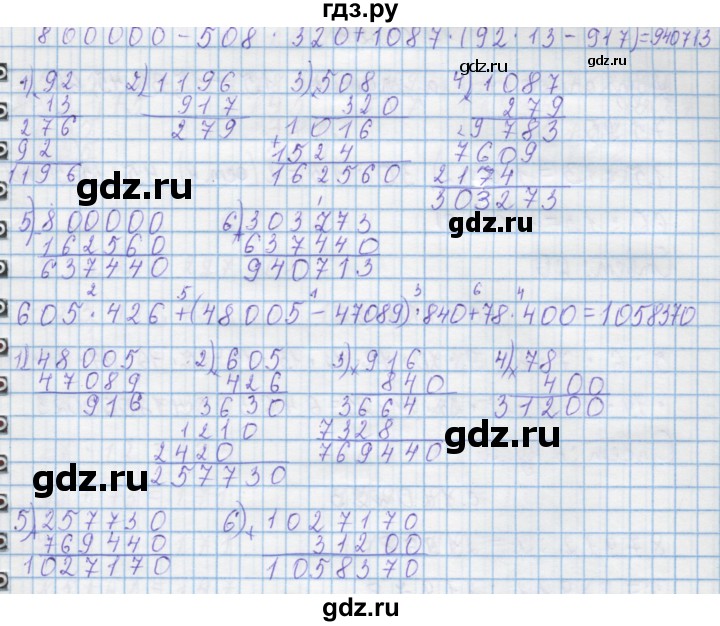 гдз.ру
800000 - 508 · 320 + 1087 · (92 · 13 - 917) = 940713
1) 92 2) 1196 3) 508 4) 1087
13 917 320 279
276 279 1016 9783
92 1524 7609
1196 162560 2174
303273
gdz.ru
gdz.ru
gdz.ru
5) 800000 6) 303273
162560 637440
637440 940713
2 5 1 3 6 4
605 · 426 + (48005 - 47089) · 840 + 78 · 400 = 1058370
1) 48005 2) 605 3) 916 4) 78
47089 426 840 400
916 3630 3664 31200
1210 7328
2420 769440
257730
gdz.ru
gdz.ru
5) 257730 6) 1027170
769440 31200
1027170 1058370
gdz.ru
gdz.ru
gdz.ru